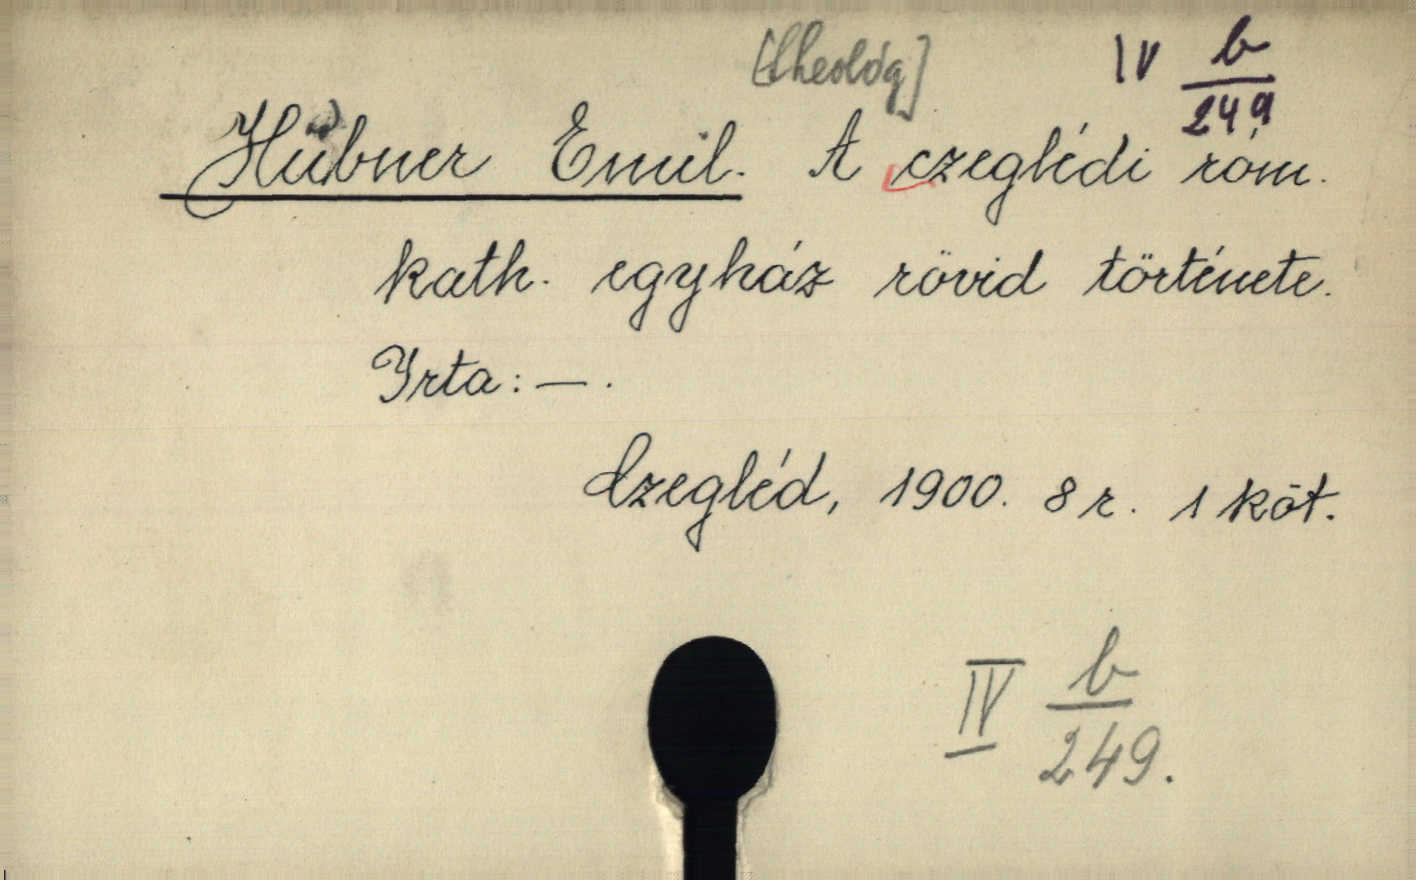 [theológ]
IV b/249
Hübner Emil. A czeglédi róm.
kath. egyház rövid története.
Irta: — .
Czegléd, 1900. 8 r. 1 köt.
IV b/249.